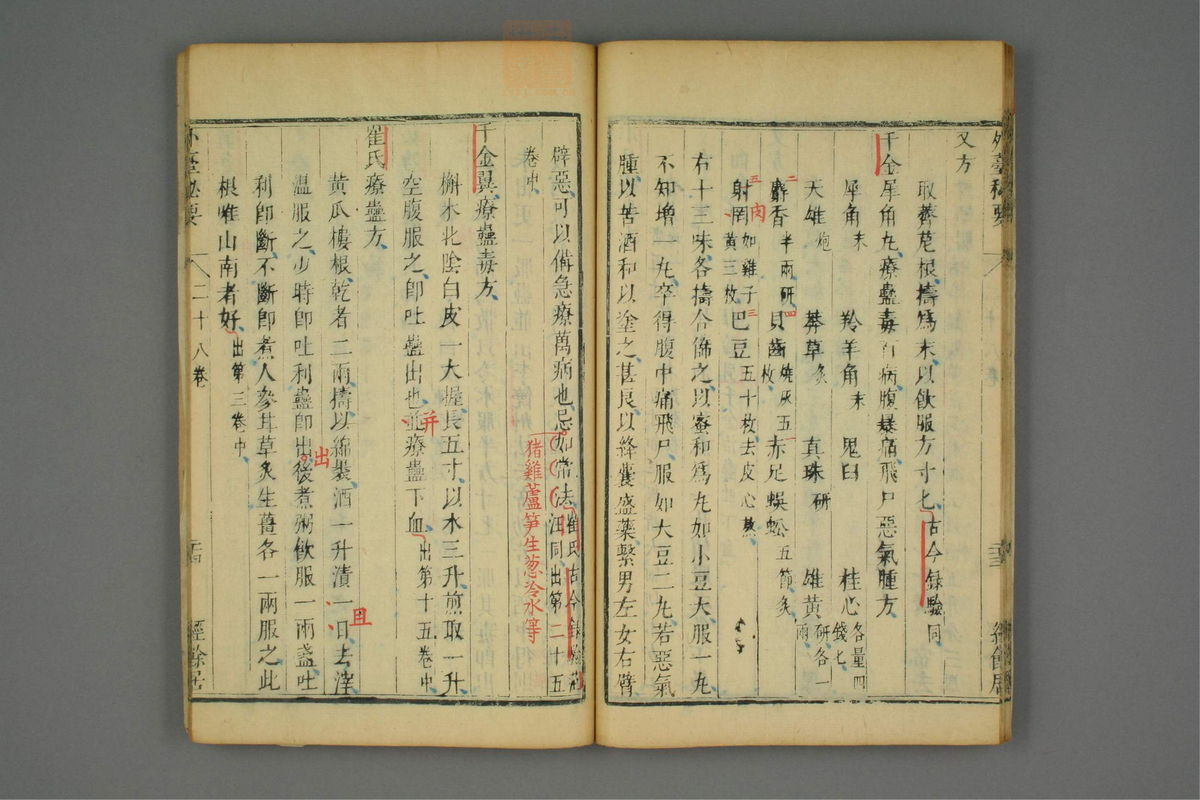 外臺秘要
二十三
經餘居
又方
取薺苨根擣爲末以飲服方寸匕古今録驗同
千金犀角丸療蠱毒百病腹暴痛飛尸惡氣腫方
犀角末 羚羊角末 鬼臼 桂心各量四錢匕
天雄炮 莽草炙 真珠研 雄黃研各一兩
麝香半兩研 貝齒燒灰五枚 赤足蜈蚣五節炙
二 四 一
射罔如雞子黃三枚 巴豆五十枚去皮心熬
五 肉 三
右十三味各擣合篩之以蜜和爲丸如小豆大服一丸
不知增一丸卒得腹中痛飛尸服如大豆二丸若惡氣
腫以苦酒和以塗之甚良以絳囊盛藥繫男左女右臂
辟惡可以備急療萬病也忌如常法崔氏古今録驗范汪同出第二十五
猪雞蘆笋生葱冷水等
卷中
千金翼療蠱毒方
槲木北陰白皮一大握長五寸以水三升煎取一升
空腹服之卽吐蠱出也並療蠱下血出第十五卷中
并
崔氏療蠱方
黃瓜樓根乾者二兩擣以綿裹酒一升漬一日去滓
且
溫服之少時卽吐利蠱卽出後煮粥飲服一兩盞吐
出
利卽斷不斷卽煮人參甘草炙生薑各一兩服之此
根唯山南者好出第三卷中
外臺秘要
二十八卷
二十四
經餘居